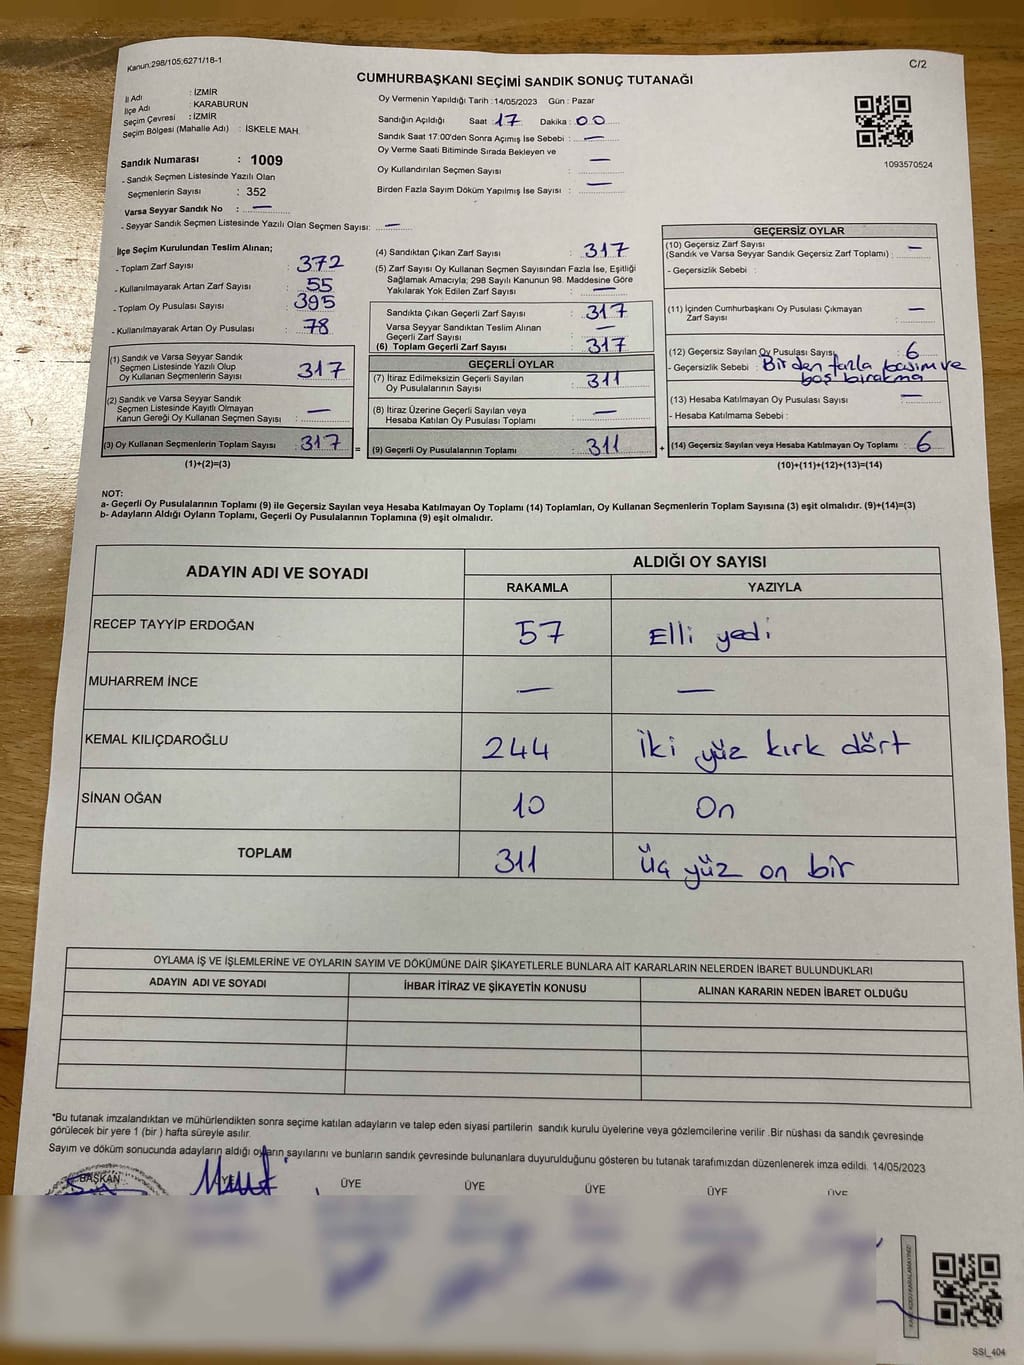 Kanun:298/105;6271/18-1
C/2
CUMHURBAŞKANI SEÇİMİ SANDIK SONUÇ TUTANAĞI
İl Adı : İZMİR
İlçe Adı : KARABURUN
Seçim Çevresi : İZMİR
Seçim Bölgesi (Mahalle Adı) : İSKELE MAH.
Sandık Numarası : 1009
- Sandık Seçmen Listesinde Yazılı Olan
Seçmenlerin Sayısı : 352
Varsa Seyyar Sandık No : —
- Seyyar Sandık Seçmen Listesinde Yazılı Olan Seçmen Sayısı: —
Oy Vermenin Yapıldığı Tarih : 14/05/2023 Gün : Pazar
Sandığın Açıldığı Saat : 17 Dakika : 00
Sandık Saat 17:00'den Sonra Açımış İse Sebebi : —
Oy Verme Saati Bitiminde Sırada Bekleyen ve
Oy Kullandırılan Seçmen Sayısı : —
Birden Fazla Sayım Döküm Yapılmış İse Sayısı : —
1093570524
İlçe Seçim Kurulundan Teslim Alınan;
- Toplam Zarf Sayısı : 372
- Kullanılmayarak Artan Zarf Sayısı : 55
- Toplam Oy Pusulası Sayısı : 395
- Kullanılmayarak Artan Oy Pusulası : 78
(1) Sandık ve Varsa Seyyar Sandık
Seçmen Listesinde Yazılı Olup
Oy Kullanan Seçmenlerin Sayısı : 317
(2) Sandık ve Varsa Seyyar Sandık
Seçmen Listesinde Kayıtlı Olmayan
Kanun Gereği Oy Kullanan Seçmen Sayısı : —
(3) Oy Kullanan Seçmenlerin Toplam Sayısı : 317 =
(1)+(2)=(3)
(4) Sandıktan Çıkan Zarf Sayısı : 317
(5) Zarf Sayısı Oy Kullanan Seçmen Sayısından Fazla İse, Eşitliği
Sağlamak Amacıyla; 298 Sayılı Kanunun 98. Maddesine Göre
Yakılarak Yok Edilen Zarf Sayısı : —
Sandıkta Çıkan Geçerli Zarf Sayısı : 317
Varsa Seyyar Sandıktan Teslim Alınan
Geçerli Zarf Sayısı : —
(6) Toplam Geçerli Zarf Sayısı : 317
GEÇERLİ OYLAR
(7) İtiraz Edilmeksizin Geçerli Sayılan
Oy Pusulalarının Sayısı : 311
(8) İtiraz Üzerine Geçerli Sayılan veya
Hesaba Katılan Oy Pusulası Toplamı : —
(9) Geçerli Oy Pusulalarının Toplamı : 311 +
GEÇERSİZ OYLAR
(10) Geçersiz Zarf Sayısı
(Sandık ve Varsa Seyyar Sandık Geçersiz Zarf Toplamı) : —
- Geçersizlik Sebebi :
(11) İçinden Cumhurbaşkanı Oy Pusulası Çıkmayan
Zarf Sayısı : —
(12) Geçersiz Sayılan Oy Pusulası Sayısı : 6
- Geçersizlik Sebebi : Birden fazla basım ve
boş bırakma
(13) Hesaba Katılmayan Oy Pusulası Sayısı : —
- Hesaba Katılmama Sebebi :
(14) Geçersiz Sayılan veya Hesaba Katılmayan Oy Toplamı : 6
(10)+(11)+(12)+(13)=(14)
NOT:
a- Geçerli Oy Pusulalarının Toplamı (9) ile Geçersiz Sayılan veya Hesaba Katılmayan Oy Toplamı (14) Toplamları, Oy Kullanan Seçmenlerin Toplam Sayısına (3) eşit olmalıdır. (9)+(14)=(3)
b- Adayların Aldığı Oyların Toplamı, Geçerli Oy Pusulalarının Toplamına (9) eşit olmalıdır.
ADAYIN ADI VE SOYADI
ALDIĞI OY SAYISI
RAKAMLA YAZIYLA
RECEP TAYYİP ERDOĞAN 57 Elli yedi
MUHARREM İNCE — —
KEMAL KILIÇDAROĞLU 244 İki yüz kırk dört
SİNAN OĞAN 10 On
TOPLAM 311 Üç yüz on bir
OYLAMA İŞ VE İŞLEMLERİNE VE OYLARIN SAYIM VE DÖKÜMÜNE DAİR ŞİKAYETLERLE BUNLARA AİT KARARLARIN NELERDEN İBARET BULUNDUKLARI
ADAYIN ADI VE SOYADI İHBAR İTİRAZ VE ŞİKAYETİN KONUSU ALINAN KARARIN NEDEN İBARET OLDUĞU
*Bu tutanak imzalandıktan ve mühürlendikten sonra seçime katılan adayların ve talep eden siyasi partilerin sandık kurulu üyelerine veya gözlemcilerine verilir .Bir nüshası da sandık çevresinde
görülecek bir yere 1 (bir ) hafta süreyle asılır.
Sayım ve döküm sonucunda adayların aldığı oyların sayılarını ve bunların sandık çevresinde bulunanlara duyurulduğunu gösteren bu tutanak tarafımızdan düzenlenerek imza edildi. 14/05/2023
BAŞKAN ÜYE ÜYE ÜYE ÜYE ÜYE ÜYE
SSI_404